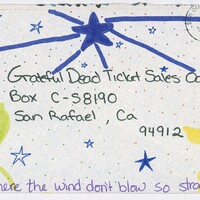 Grateful Dead Ticket Sales
Box C-S8190
San Rafael, Ca
94912
here the wind don't blow so